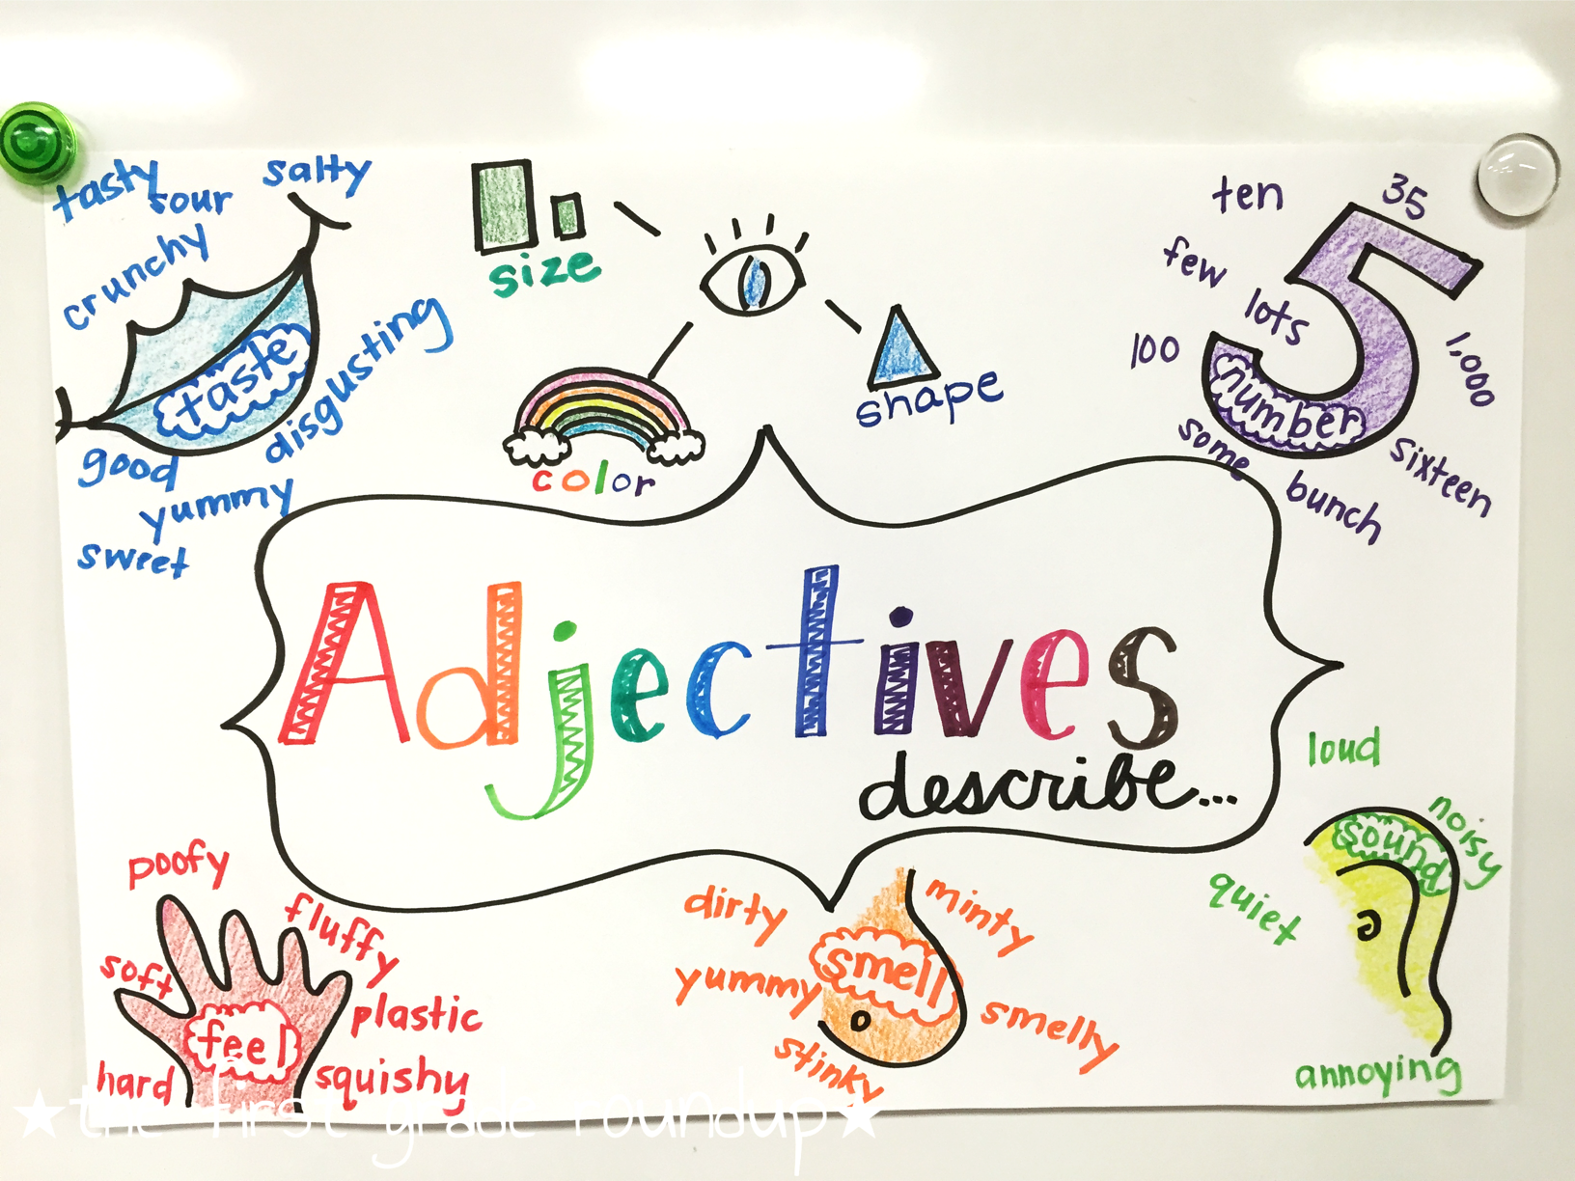 tasty
sour
salty
crunchy
taste
disgusting
good
yummy
sweet
size
color
shape
ten
35
few
lots
100
1,000
number
some
sixteen
bunch
Adjectives
describe...
poofy
fluffy
soft
feel
plastic
hard
squishy
dirty
minty
smell
yummy
smelly
stinky
loud
noisy
sound
quiet
annoying
★the first grade roundup★